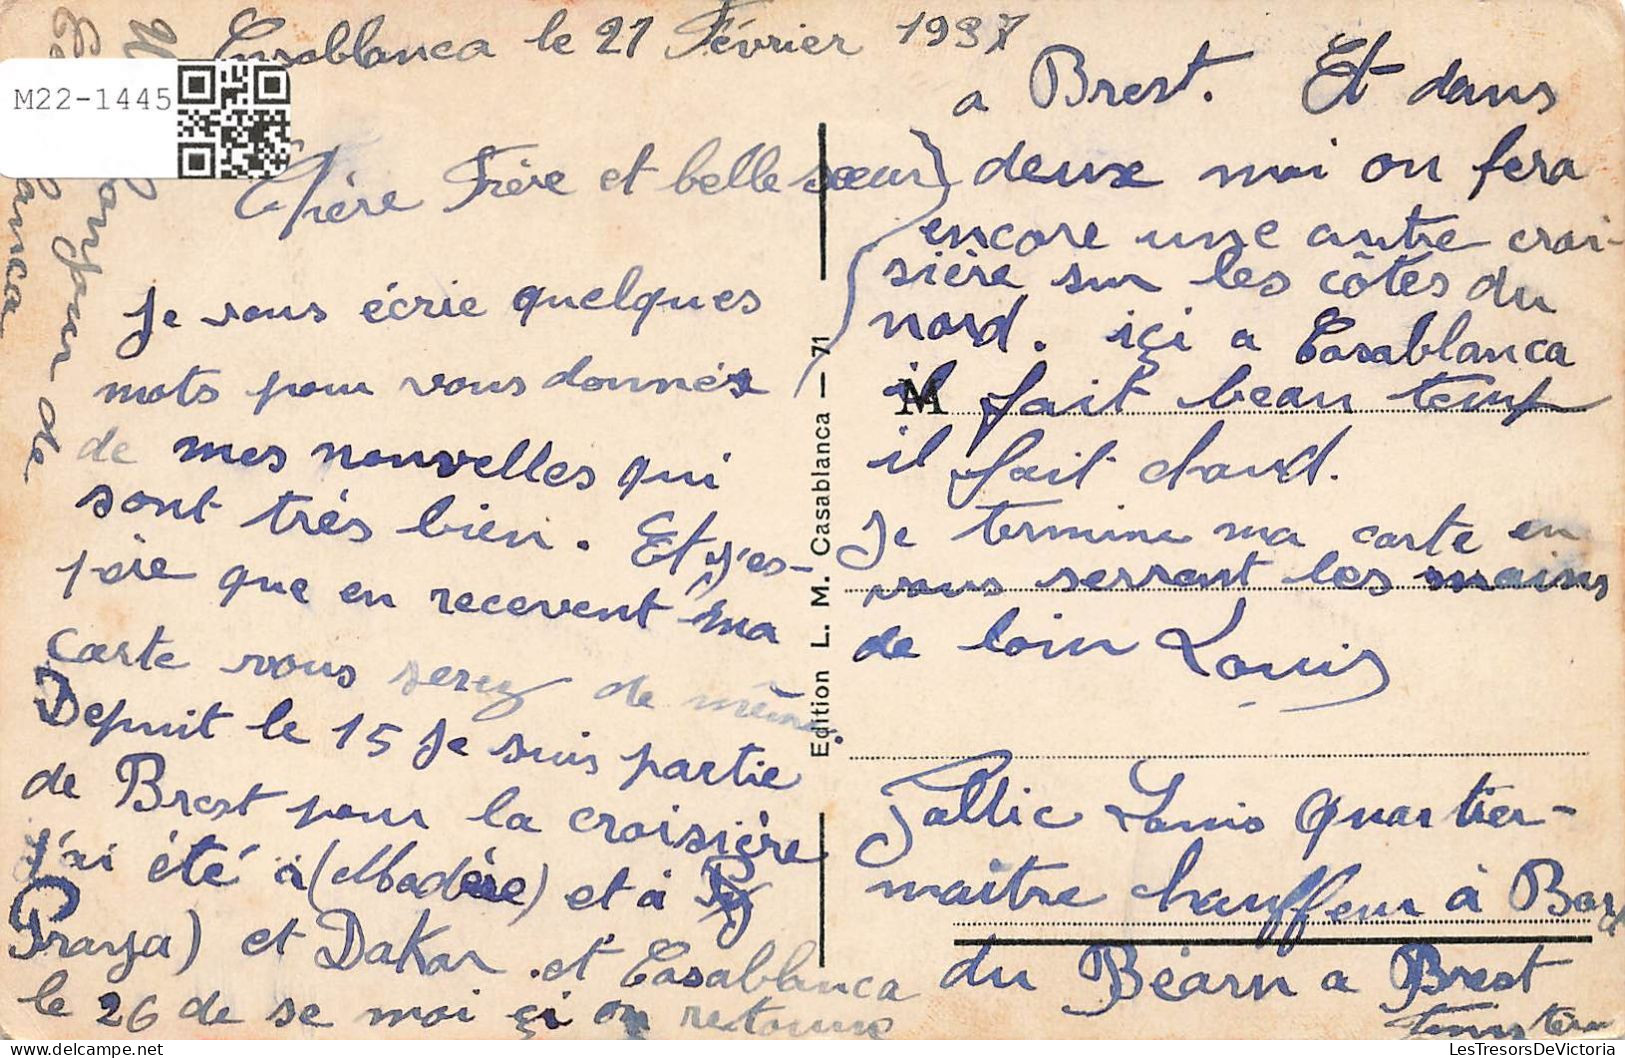 Casablanca le 21 Février 1937
M22-1445
Chère Frère et belle sœur
Je vous écrie quelques
mots pour vous donnés
de mes nouvelles qui
sont très bien. Et j'es-
père que en recevent ma
carte vous serez de même.
Depuit le 15 Je suis partie
de Brest pour la croisière
j'ai été à (Madère) et à
Praya) et Dakar et Casablanca
le 26 de se moi çi on retourne
a Brest. Et dans
deux moi on fera
encore une autre croi-
sière sur les côtes du
nord. içi a Casablanca
il fait beau temp
il fait chaud.
Je termine ma carte en
vous serrent les mains
de loin Louis
Jallic Louis Quartier-
maitre chauffeur à Bord
du Béarn a Brest
Finistère
Bonjour de
M
Edition L. M. Casablanca — 71
LesTresorsDeVictoria